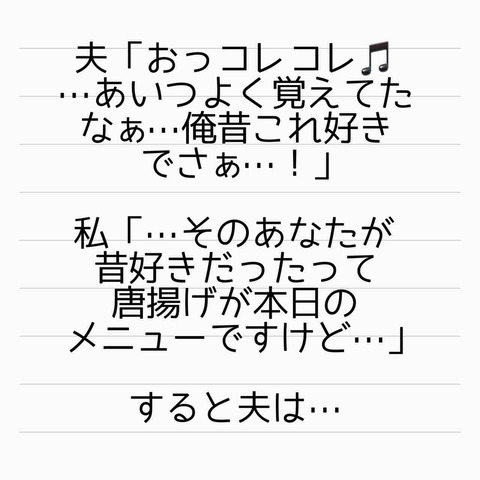 夫「おっコレコレ🎵
…あいつよく覚えてた
なぁ…俺昔これ好き
でさぁ…！」
私「…そのあなたが
昔好きだったって
唐揚げが本日の
メニューですけど…」
すると夫は…